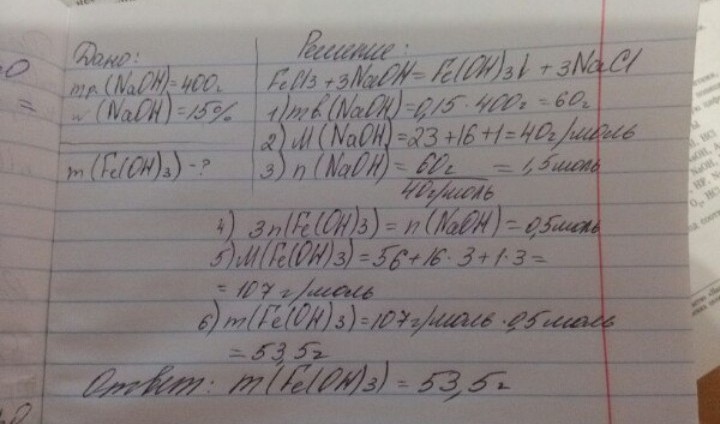 Дано:
mр.(NaOH)=400г
w(NaOH)=15%
m(Fe(OH)3)-?
Решение:
FeCl3+3NaOH=Fe(OH)3↓+3NaCl
1) mв(NaOH)=0,15·400г=60г
2) M(NaOH)=23+16+1=40г/моль
3) n(NaOH)=60г/40г/моль=1,5моль
4) 3n(Fe(OH)3)=n(NaOH)=0,5моль
5) M(Fe(OH)3)=56+16·3+1·3=
=107г/моль
6) m(Fe(OH)3)=107г/моль·0,5моль
=53,5г
Ответ: m(Fe(OH)3)=53,5г